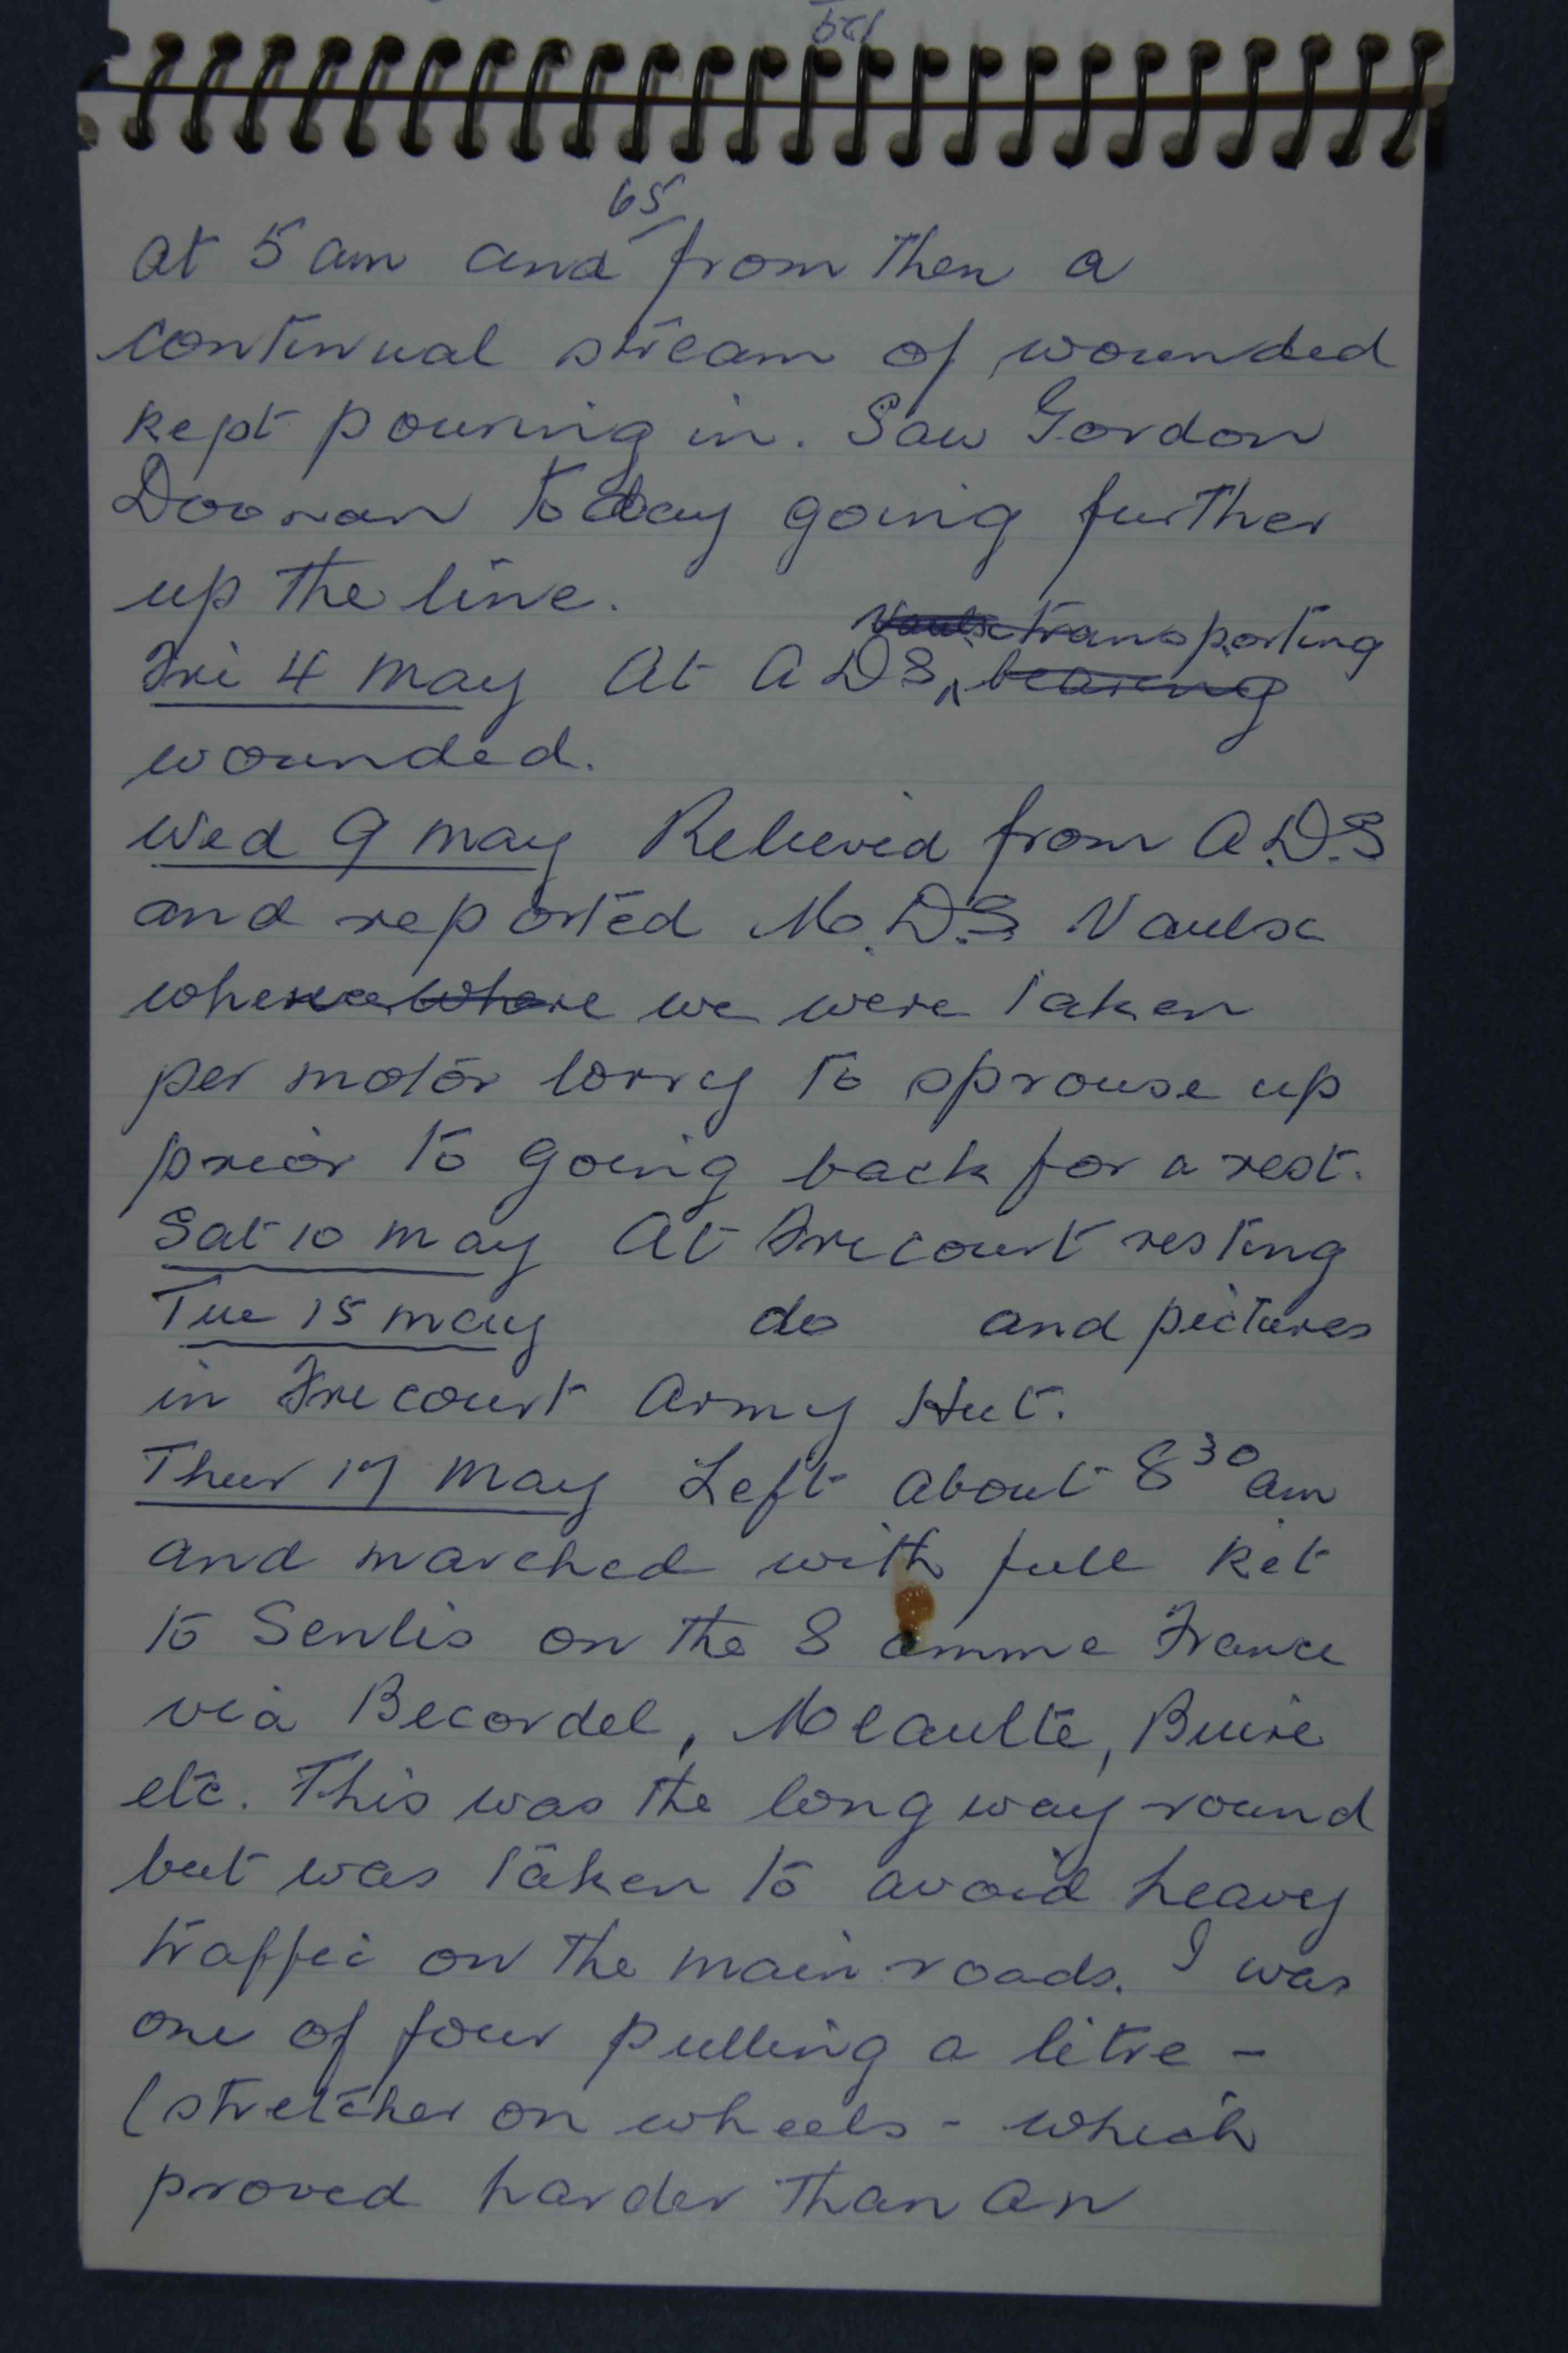 65
at 5 am and from then a
continual stream of wounded
kept pouring in. Saw Gordon
Doonan today going further
up the line.
Vaulx transporting
Fri 4 May At ADS, bearing
wounded.
Wed 9 May Relieved from A.D.S
and reported M.D.S Vaulx
whence where we were taken
per motor lorry to sprouse up
prior to going back for a rest.
Sat 10 May At Fricourt resting
Tue 15 May do and pictures
in Fricourt Army Hut.
Thur 17 May Left about 8 30 am
and marched with full kit
to Senlis on the Somme France
via Becordel, Mlaulte, Buire
etc. This was the long way round
but was taken to avoid heavy
traffic on the main roads. I was
one of four pulling a litre -
(stretcher on wheels - which
proved harder than an